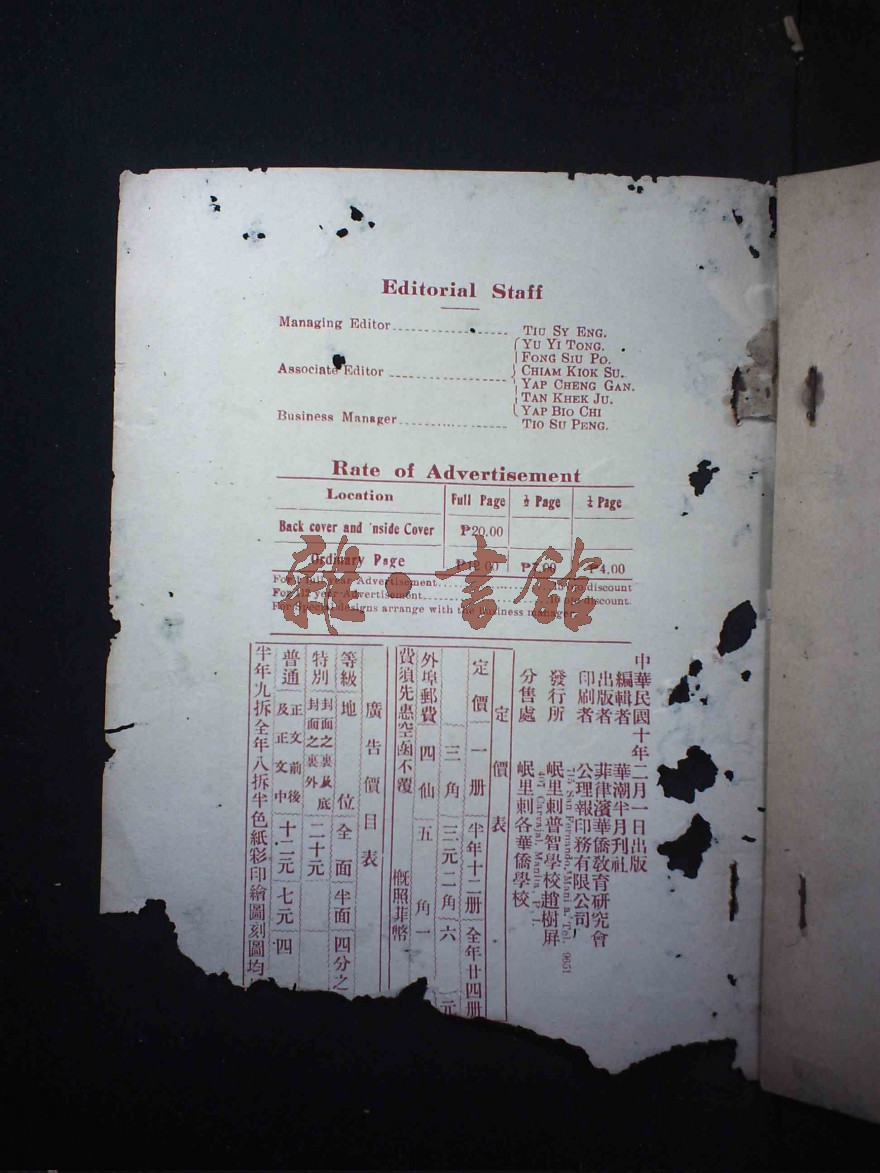 Editorial Staff
Managing Editor TIU SY ENG.
YU YI TONG.
FONG SIU PO.
Associate Editor CHIAM KIOK SU.
YAP CHENG GAN.
TAN KHEK JU.
YAP BIO CHI
Business Manager TIO SU PENG.
Rate of Advertisement
Location Full Page ½ Page ¼ Page
Back cover and 'nside Cover ₱20.00
Ordinary Page ₱12.00 ₱7.00 ₱4.00
For Full year Advertisement discount
For 1|2 year Advertisement 10 o|o discount.
For Special designs arrange with the Business manager
雜·書館
中華民國十年二月一日出版
編輯者 華潮半月刊社
出版者 菲律濱華僑敎育研究會
印刷者 公理報印務有限公司
715 San Fernando, Mani a. Tel. 6651
發行所 岷里刺普智學校趙樹屏
407 Carvajal, Manila, P. I.
分售處 岷里刺各華僑學校
定價表
定價 一册 半年十二册 全年廿四册
三角 三元二角 六元
外埠郵費 四仙 五角 一
費須先惠空函不覆 概照菲幣
廣告價目表
等級 地位 全面 半面 四分之
特別 封面之裏及底封面之裏外 二十元
普通 正文前後及正文中 十二元 七元 四
半年九折全年八折半色紙彩印繪圖刻圖均